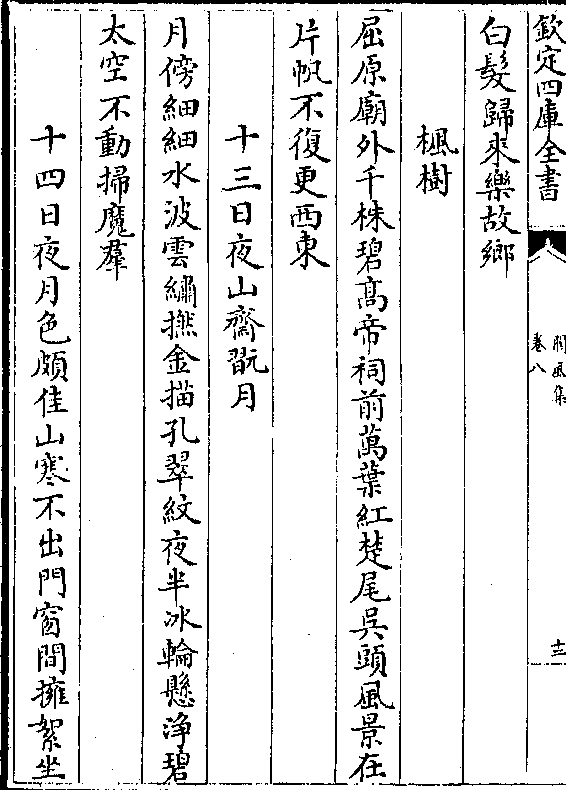 欽定四庫全書
閬風集
卷八
十三
白髪歸來樂故鄉
楓樹
屈原廟外千株碧髙帝祠前萬葉紅楚尾吳頭風景在
片帆不復更西東
十三日夜山齋翫月
月傍細細水波雲繡撚金描孔翠紋夜半冰輪懸浄碧
太空不動掃魔羣
十四日夜月色頗佳山寒不出門窗間擁絮坐